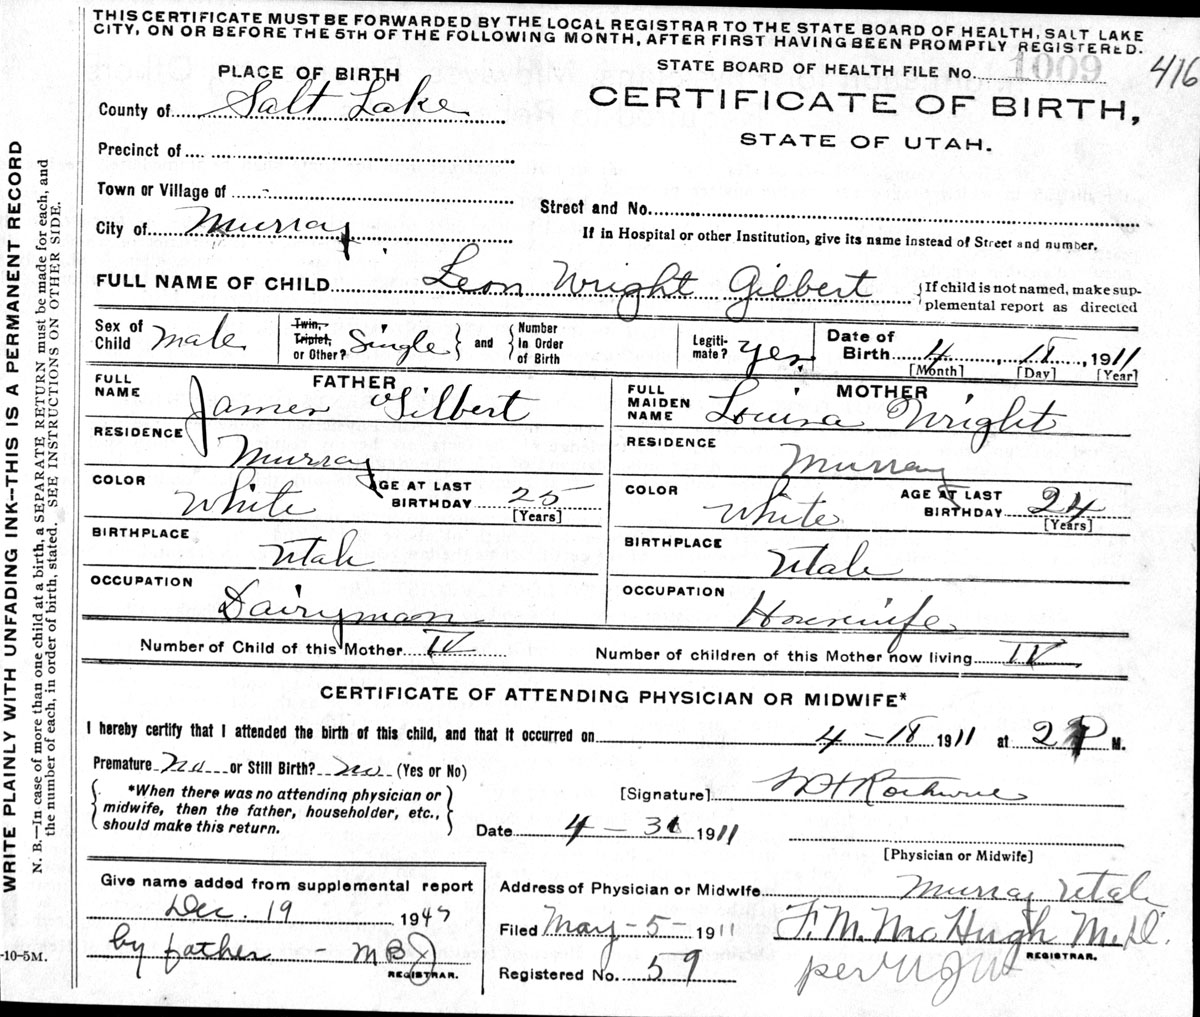 THIS CERTIFICATE MUST BE FORWARDED BY THE LOCAL REGISTRAR TO THE STATE BOARD OF HEALTH, SALT LAKE
CITY, ON OR BEFORE THE 5TH OF THE FOLLOWING MONTH, AFTER FIRST HAVING BEEN PROMPTLY REGISTERED.
PLACE OF BIRTH
STATE BOARD OF HEALTH FILE NO. 1009
416
County of Salt Lake
CERTIFICATE OF BIRTH,
STATE OF UTAH.
Precinct of
Town or Village of -
Street and No.
City of Murray
If in Hospital or other Institution, give its name instead of Street and number.
FULL NAME OF CHILD Leon Wright Gilbert {If child is not named, make sup-
plemental report as directed
Sex of Child male Twin, Triplet, or Other? Single } and { Number In Order of Birth Legiti-mate? yes Date of Birth 4, 18, 1911
[Month] [Day] [Year]
FATHER
FULL NAME James Gilbert
RESIDENCE Murray
COLOR White AGE AT LAST BIRTHDAY 25
[Years]
BIRTHPLACE Utah
OCCUPATION Dairyman
MOTHER
FULL MAIDEN NAME Louisa Wright
RESIDENCE Murray
COLOR White AGE AT LAST BIRTHDAY 24
[Years]
BIRTHPLACE Utah
OCCUPATION Housewife
Number of Child of this Mother IV Number of children of this Mother now living IV
CERTIFICATE OF ATTENDING PHYSICIAN OR MIDWIFE*
I hereby certify that I attended the birth of this child, and that it occurred on 4-18 1911 at 2 P M.
Premature No or Still Birth? No (Yes or No)
*When there was no attending physician or
midwife, then the father, householder, etc.,
should make this return.
[Signature]
Date 4-30 1911
[Physician or Midwife]
Give name added from supplemental report
Dec. 19 1947
by father - MBJ
REGISTRAR.
Address of Physician or Midwife Murray Utah
Filed May-5- 1911 F. M. McHugh M.D.
REGISTRAR.
Registered No. 59 per
-10-5M.
WRITE PLAINLY WITH UNFADING INK--THIS IS A PERMANENT RECORD
N. B.—In case of more than one child at a birth, a SEPARATE RETURN must be made for each, and
the number of each, in order of birth, stated. SEE INSTRUCTIONS ON OTHER SIDE.